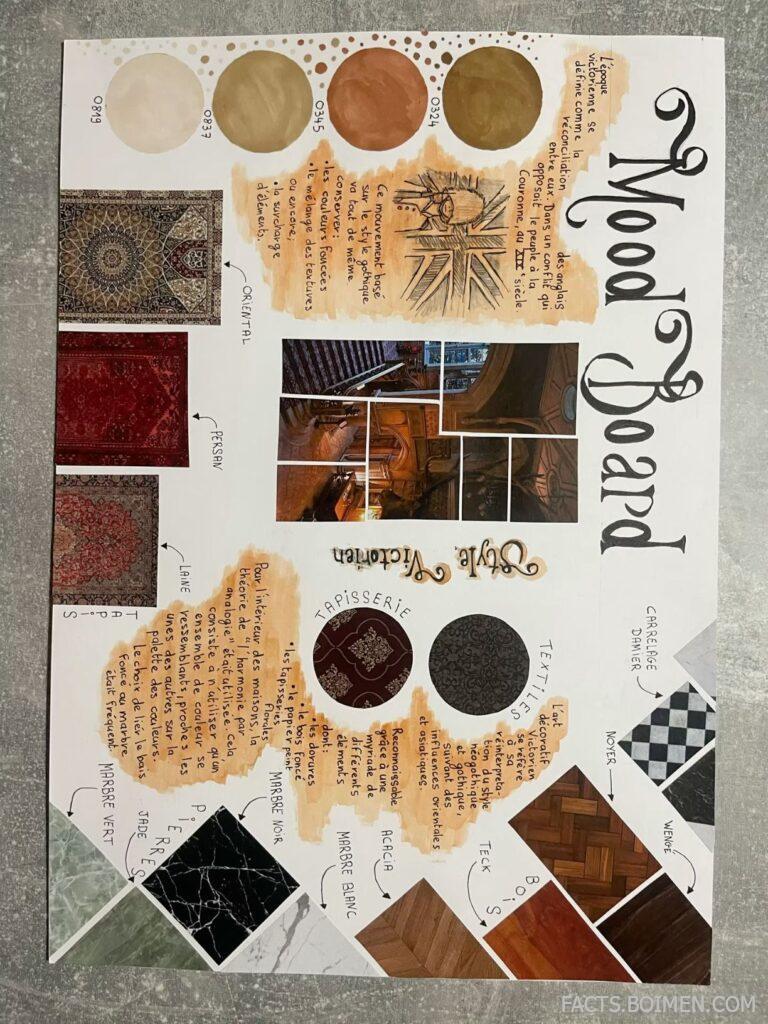 Mood Board
L'époque
victorienne se
définie comme la
réconciliation des anglais
entre eux. Dans un conflit qui
opposait le peuple à la
Couronne, au XIXe siècle
Ce mouvement basé
sur le style gothique
va tout de même
conserver:
• les couleurs foncées
• le mélange des textures
ou encore;
• la surcharge
d'éléments.
0324
0345
0837
0819
ORIENTAL
PERSAN
LAINE
TAPIS
Style Victorien
TEXTILES
TAPISSERIE
L'art
décoratif
Victorien
se réfère
à sa
réinterpréta-
tion du style
néogothique
et gothique,
suivant des
influences orientales
et asiatiques.
Reconnaissable
grâce à une
myriade de
différents
éléments
dont:
• les dorures
• le bois foncé
• le papier peint
floral
• les tapisseries
Pour l'intérieur des maisons, la
théorie de "l'harmonie par
analogie" était utilisée, cela
consiste à n'utiliser qu'un
ensemble de couleur se
ressemblants, proches les
unes des autres sur la
palette des couleurs.
Le choix de lier le bois
foncé au marbre
était fréquent.
CARRELAGE
DAMIER
NOYER
WENGÉ
BOIS
TECK
ACACIA
MARBRE BLANC
MARBRE NOIR
PIERRES
JADE
MARBRE VERT
FACTS.BOIMEN.COM